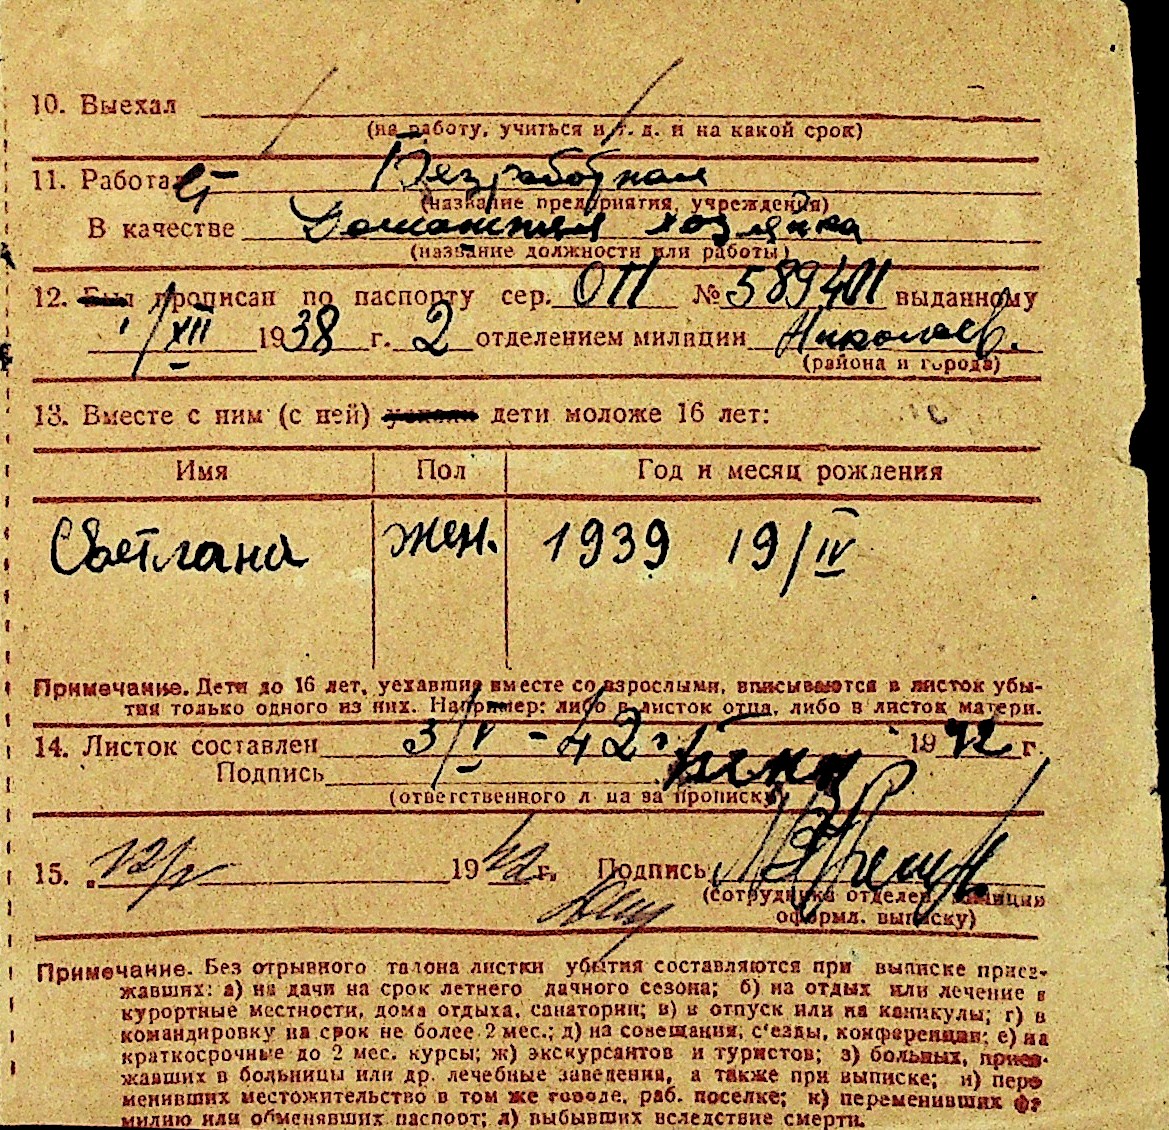 10. Выехал
(на работу, учиться и т. д. и на какой срок)
11. Работает Безработная
(название предприятия, учреждения)
В качестве Домашняя хозяйка
(название должности или работы)
12. Был прописан по паспорту сер. ОП № 589401 выданному
1/XII 1938 г. 2 отделением милиции Николаев.
(района и города)
13. Вместе с ним (с ней) дети моложе 16 лет:
Имя Пол Год и месяц рождения
Светлана жен. 1939 19/IV
Примечание. Дети до 16 лет, уехавшие вместе со взрослыми, вписываются в листок убы-
тия только одного из них. Например: либо в листок отца, либо в листок матери.
14. Листок составлен 3/V - 42 г. 1942 г.
Подпись
(ответственного лица за прописку)
15. 12/V 1942 г. Подпись
(сотрудника отделен. милиции
оформл. выписку)
Примечание. Без отрывного талона листки убытия составляются при выписке приез-
жавших: а) на дачи на срок летнего дачного сезона; б) на отдых или лечение в
курортные местности, дома отдыха, санатории; в) в отпуск или на каникулы; г) в
командировку на срок не более 2 мес.; д) на совещания, с'езды, конференции; е) на
краткосрочные до 2 мес. курсы; ж) экскурсантов и туристов; з) больных, приез-
жавших в больницы или др. лечебные заведения, а также при выписке; и) пере
менивших местожительство в том же городе, раб. поселке; к) переменивших фа
милию или обменявших паспорт; л) выбывших вследствие смерти.